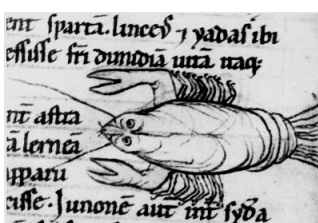 ent spartā. linceꝰ ⁊ yadas ibi
essisse fr̄i dimidiā uitā. naq:
nt̄ astra
a lerneā
apparu
cisse. Junonē aut̄ int̄ syda